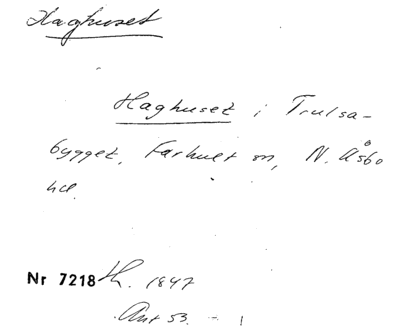 Haghuset
Haghuset i Trulsa-
bygget, Farhult sn, N. Åsbo
hd.
Nr 7218 h. 1847
Ant 53. - 1